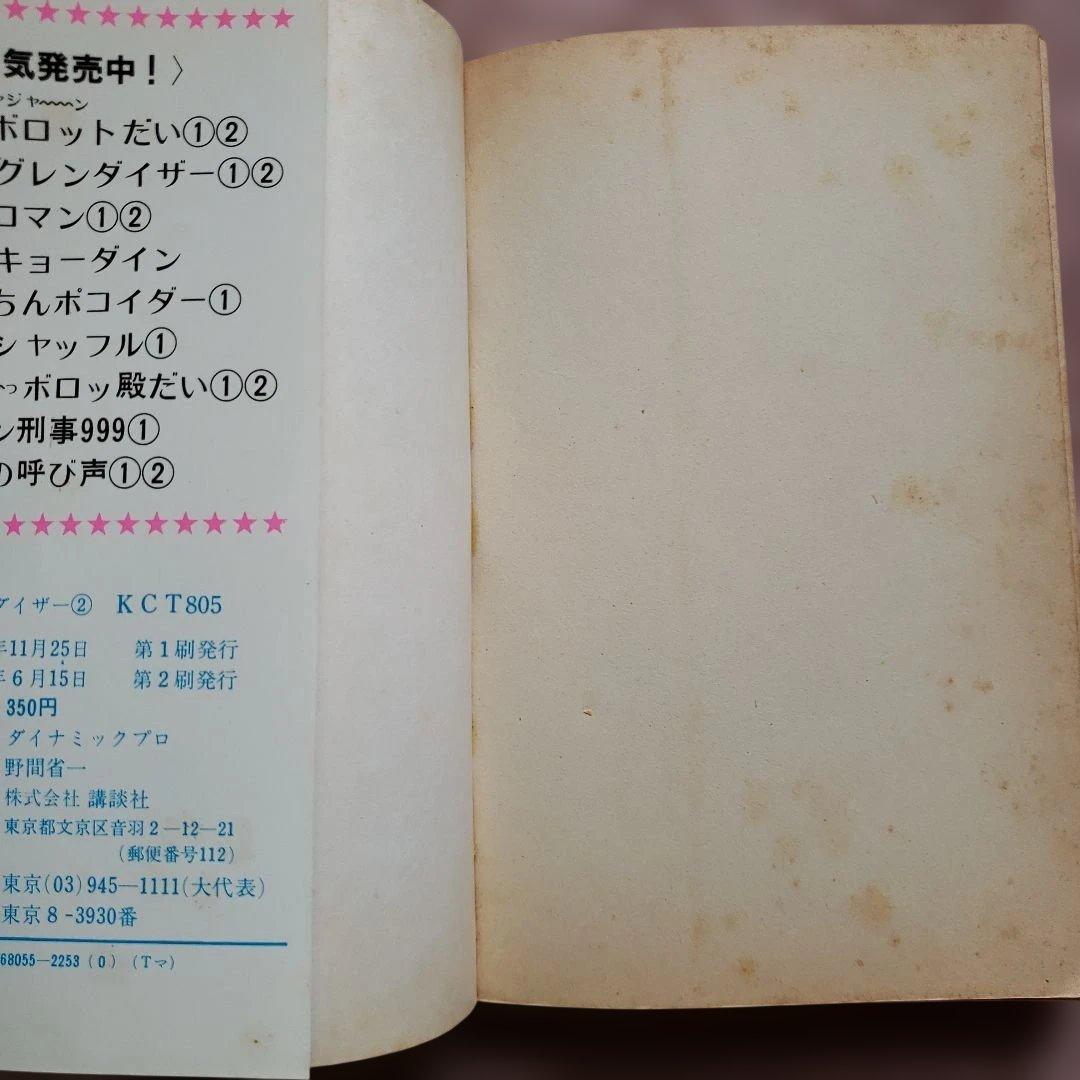 ★★★★★★★★★★
気発売中！〉
ジャ〜〜ン
ボロットだい①②
グレンダイザー①②
ロマン①②
キョーダイン
ちんポコイダー①
シャッフル①
っボロッ殿だい①②
ン刑事999①
の呼び声①②
★★★★★★★★★★
ダイザー② KCT805
年11月25日 第1刷発行
年6月15日 第2刷発行
350円
ダイナミックプロ
野間省一
株式会社 講談社
東京都文京区音羽2—12—21
(郵便番号112)
東京(03)945—1111(大代表)
東京8-3930番
68055—2253 (0) (Tマ)